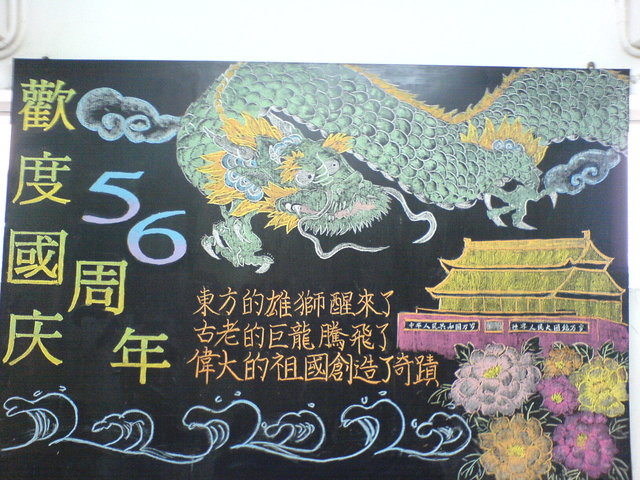 歡度國庆
56
周年
東方的雄獅醒來了
古老的巨龍騰飛了
偉大的祖國創造了奇蹟
中华人民共和国万岁
世界人民大团结万岁